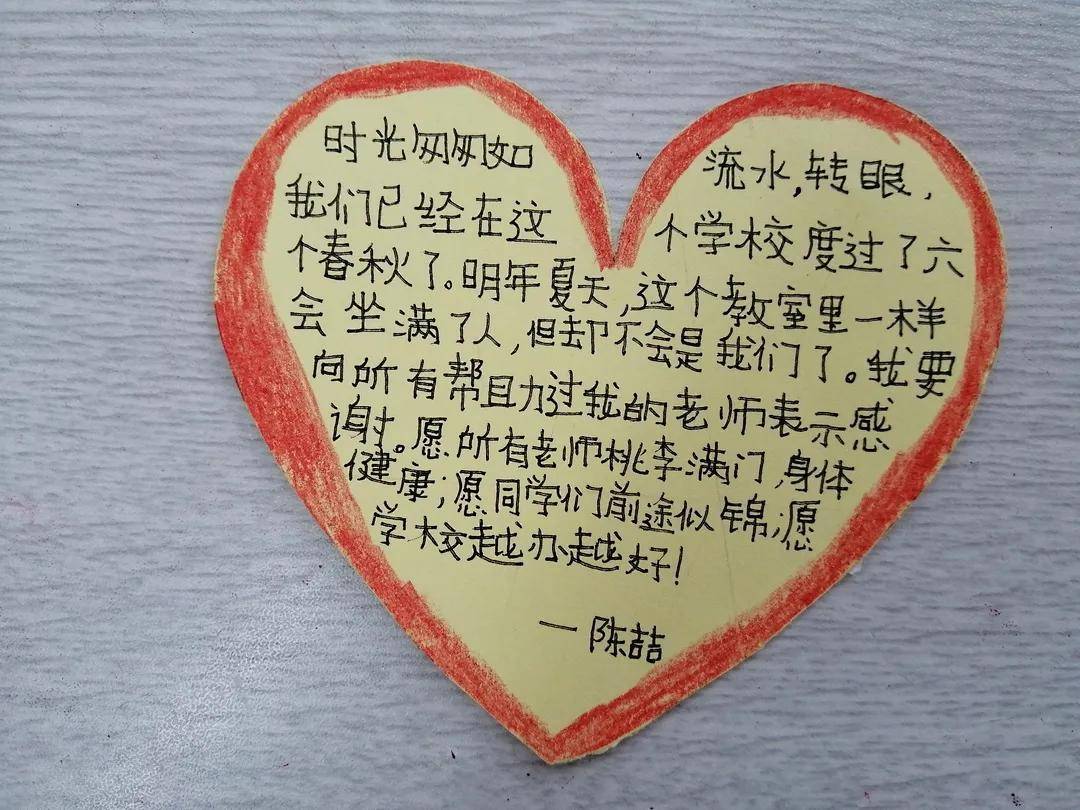 时光匆匆如流水,转眼,
我们已经在这个学校度过了六
个春秋了。明年夏天,这个教室里一样
会坐满了人,但却不会是我们了。我要
向所有帮助过我的老师表示感
谢。愿所有老师桃李满门,身体
健康;愿同学们前途似锦;愿
学校越办越好!
一陈喆